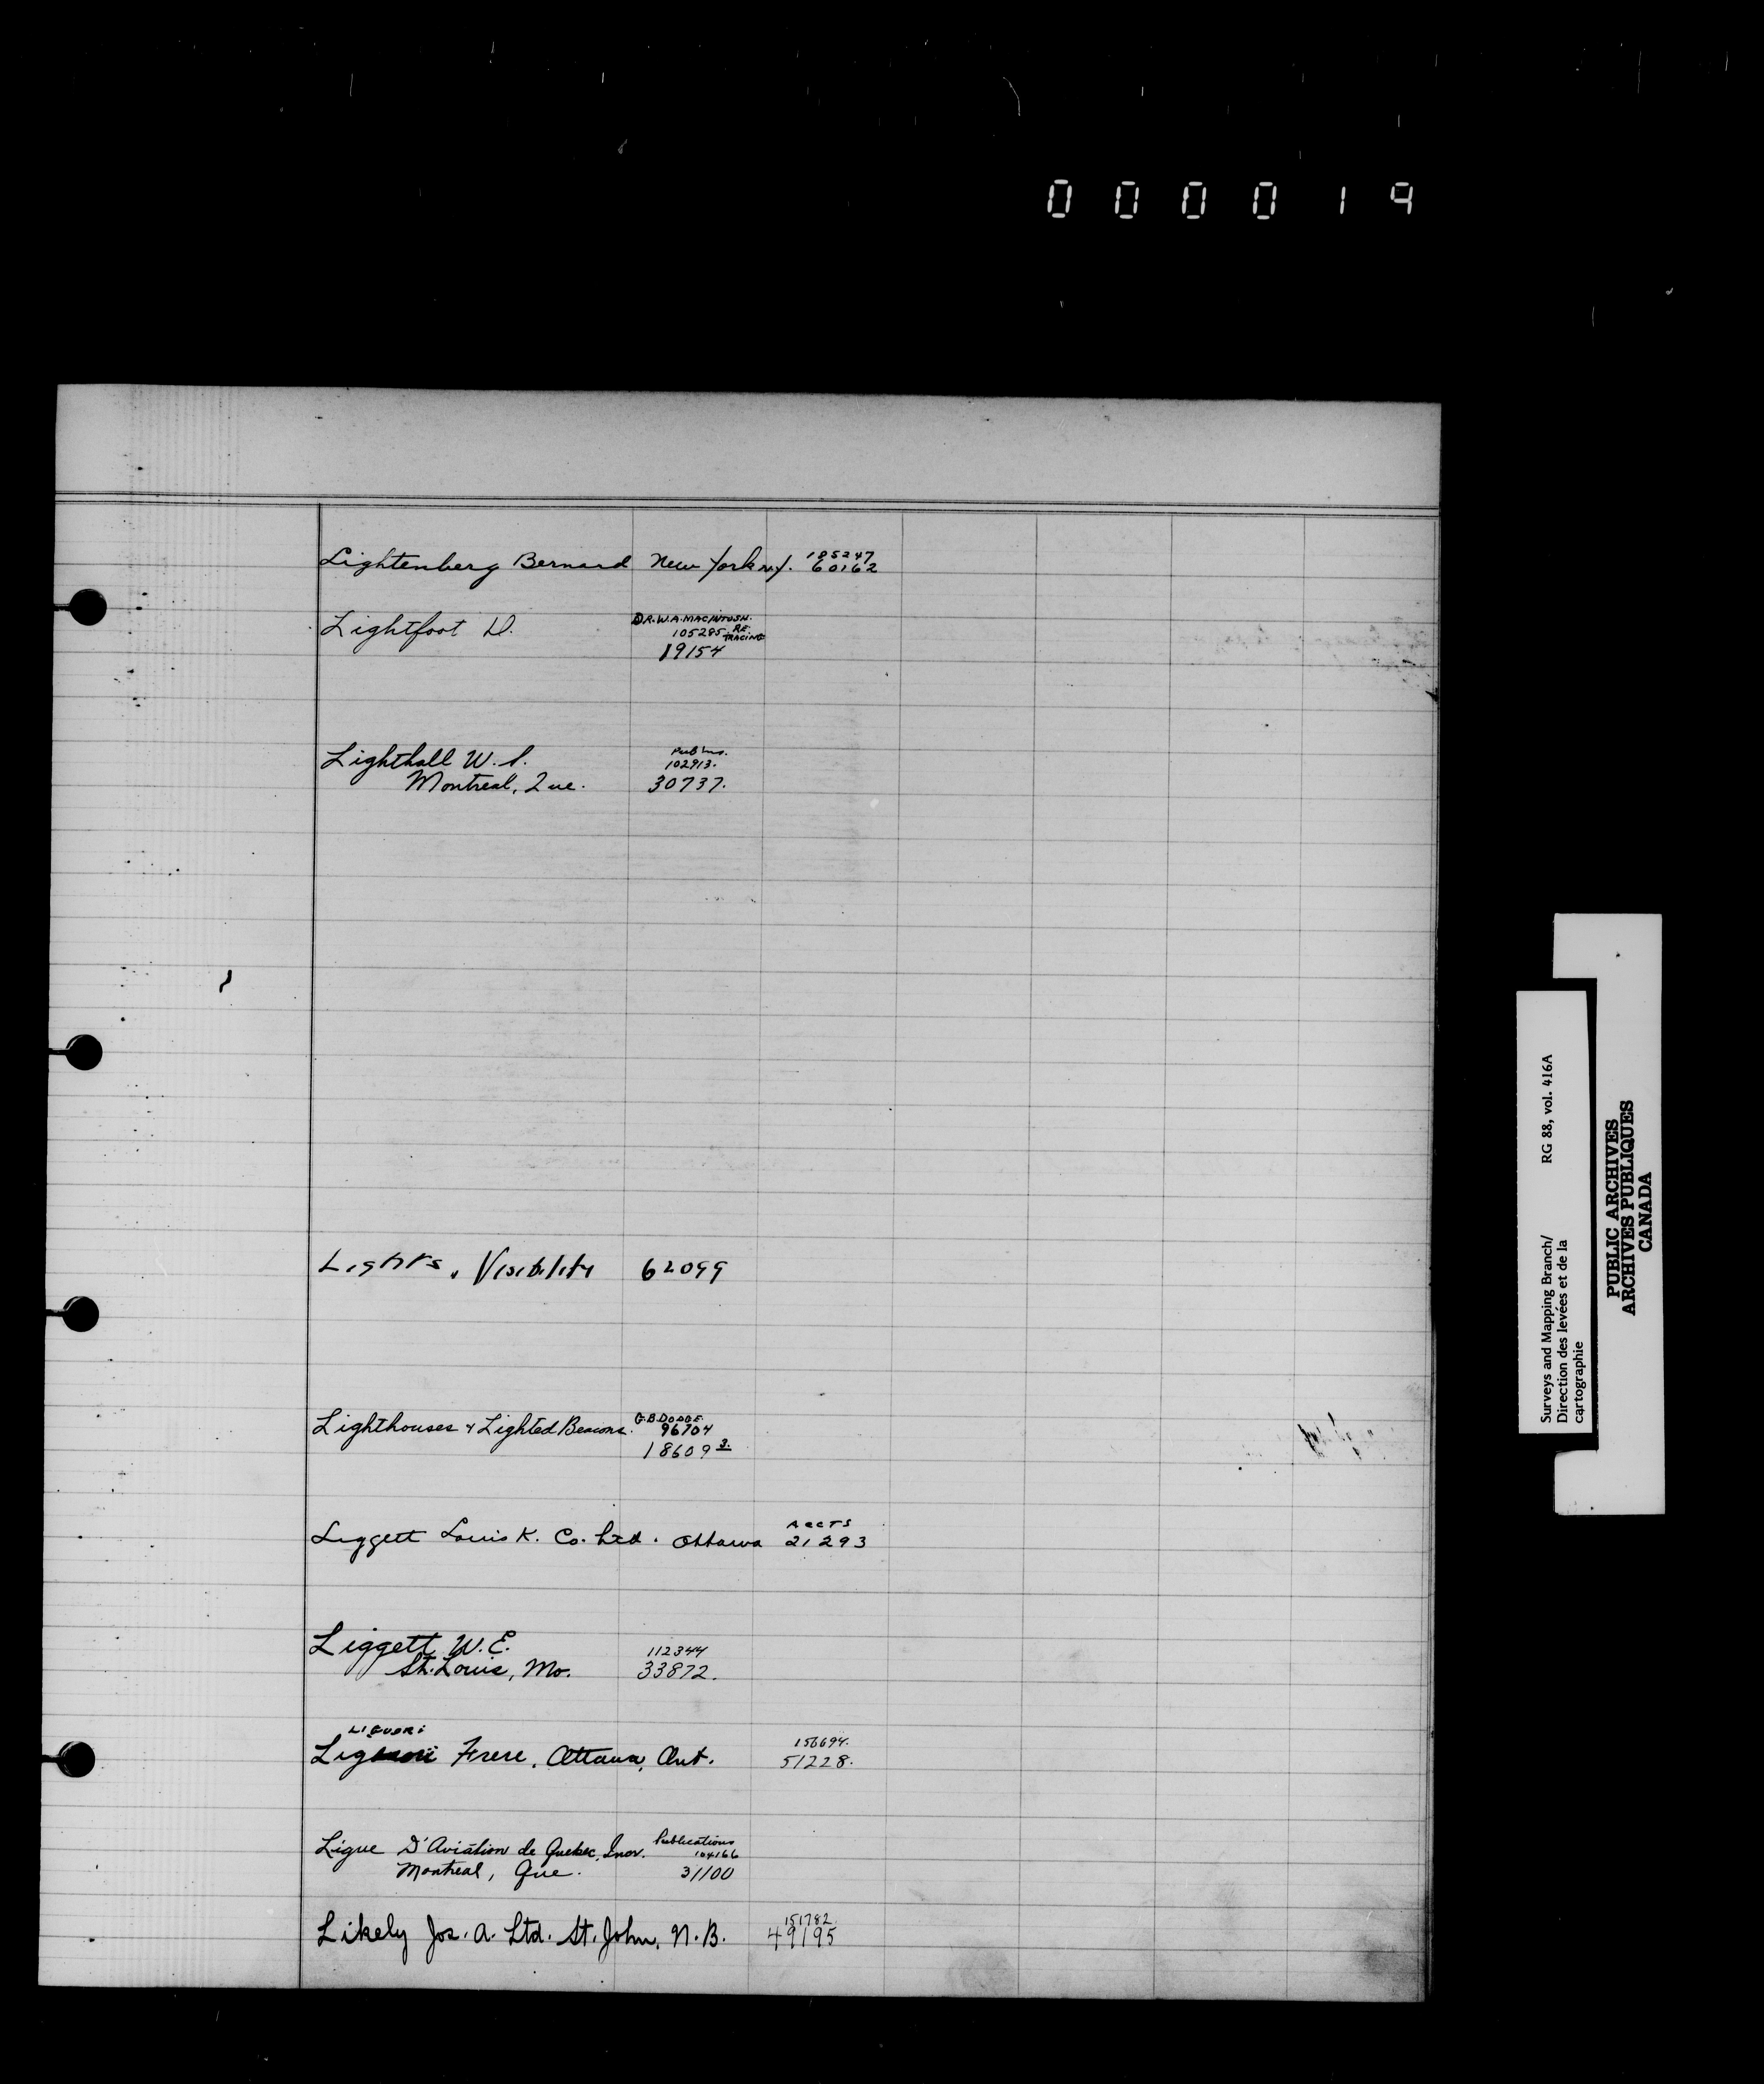 000019
Lightenberg Bernard New York N.Y. 185247
60162
Lightfoot D. DR. W.A. MACINTOSH.
105285 RE TRACING
19154
Lighthall W. S. Pub'ns.
102913.
Montreal, Que. 30737.
Lights, Visibility 62099
Lighthouses & Lighted Beacons. G.B. DODGE.
96704
18609 3.
Liggett Louis K. Co. Ltd. Ottawa ACCTS
21293
Liggett W. E. 112344
St. Louis, Mo. 33872.
LIGUORI
Frere, Ottawa, Ont. 156694.
51228.
Ligue D'Aviation de Quebec, Incr. Publications
104166
Montreal, Que. 31100
Likely Jos. A. Ltd. St. John, N.B. 151782
49195
Surveys and Mapping Branch/ RG 88, vol. 416A
Direction des levées et de la
cartographie
PUBLIC ARCHIVES
ARCHIVES PUBLIQUES
CANADA